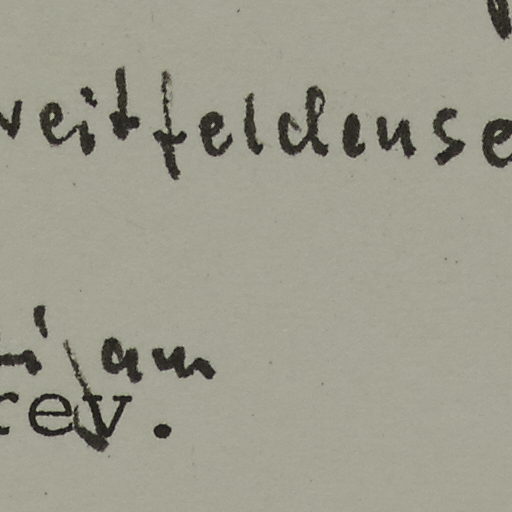 veitfeldense
i am
rev.